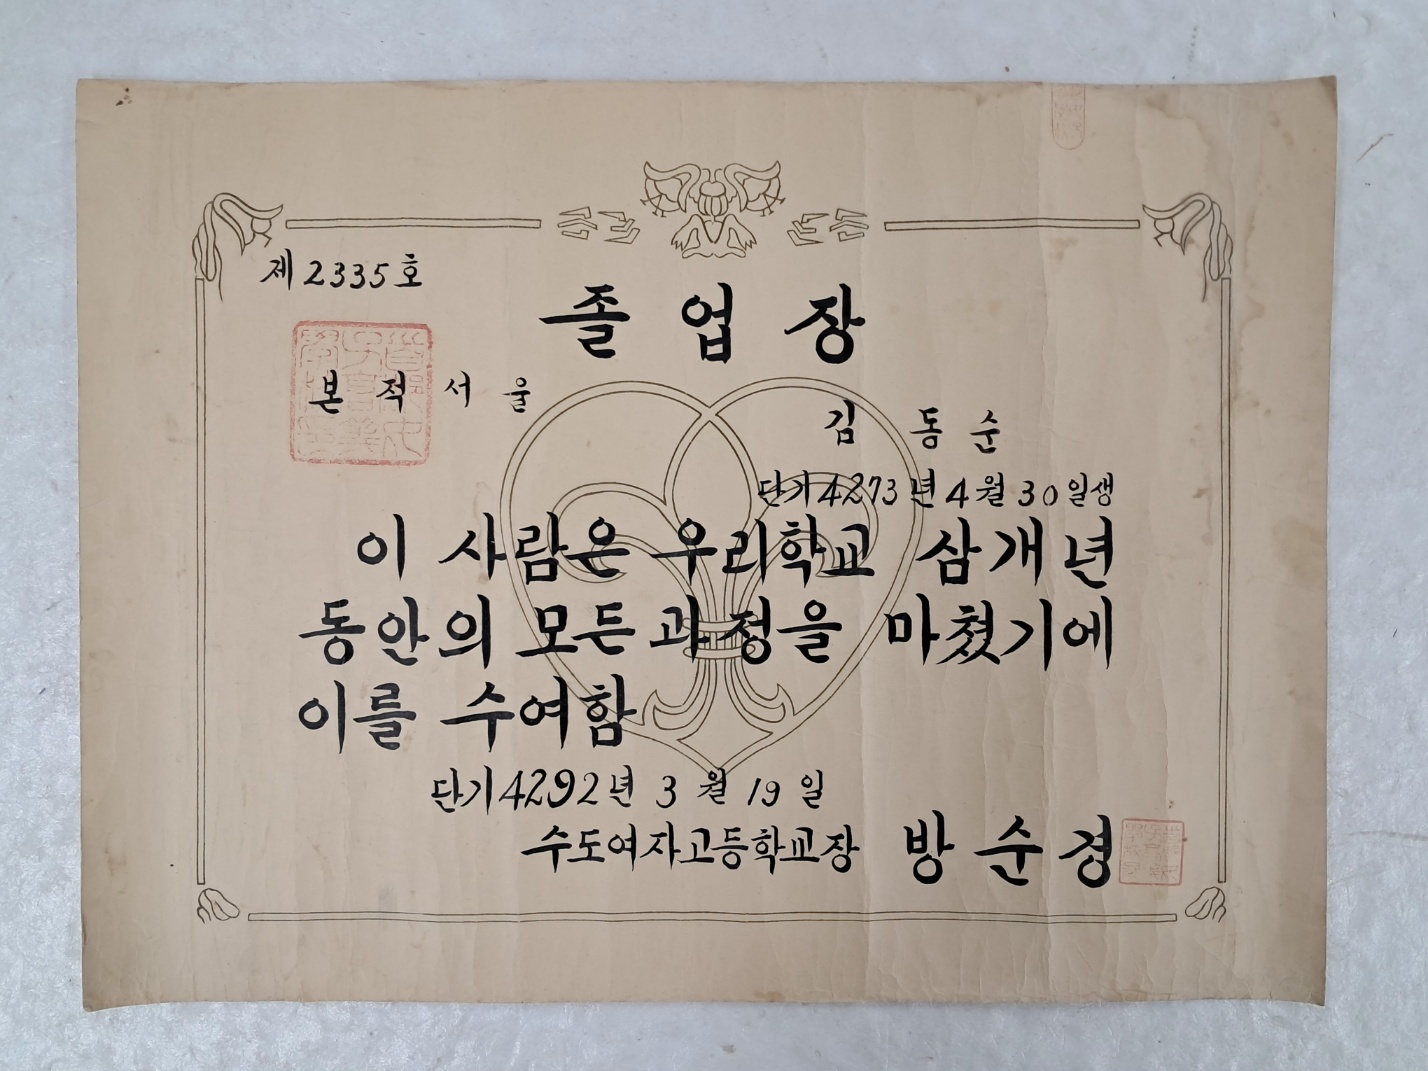 제2335호
졸업장
본적 서울
김동순
단기4273년4월30일생
이 사람은 우리학교 삼개년
동안의 모든 과정을 마쳤기에
이를 수여함
단기4292년 3월 19일
수도여자고등학교장 방순경